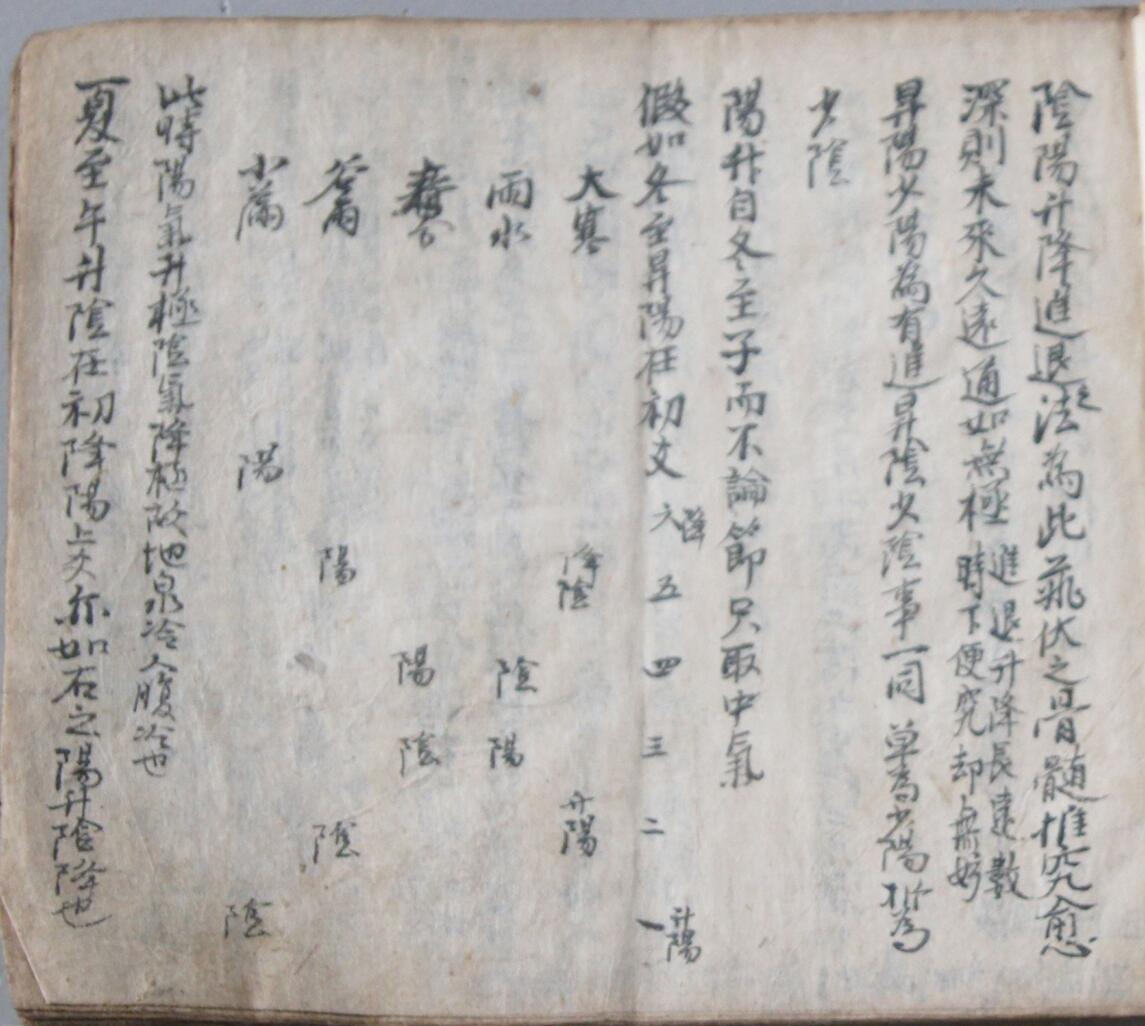 陰陽升降進退之法為此飛伏之骨髓惟究愈
深則未來久遠通如無極 進退升降長遠數
時下便究却無妨
昇陽少陽為有進昇陰少陰事一同 單為少陽 拆為
少陰
陽升自冬至子而不論節只取中氣
假如冬至昇陽在初爻 六降 五 四 三 二 一升陽
大寒 降陰 升陽
雨水 陰 陽
春分 陽 陰
谷雨 陽 陰
小滿 陽 陰
此時陽氣升極陰氣降極故地泉冷人腹冷也
一夏至午升陰在初降陽上爻亦如右之陽升陰降也